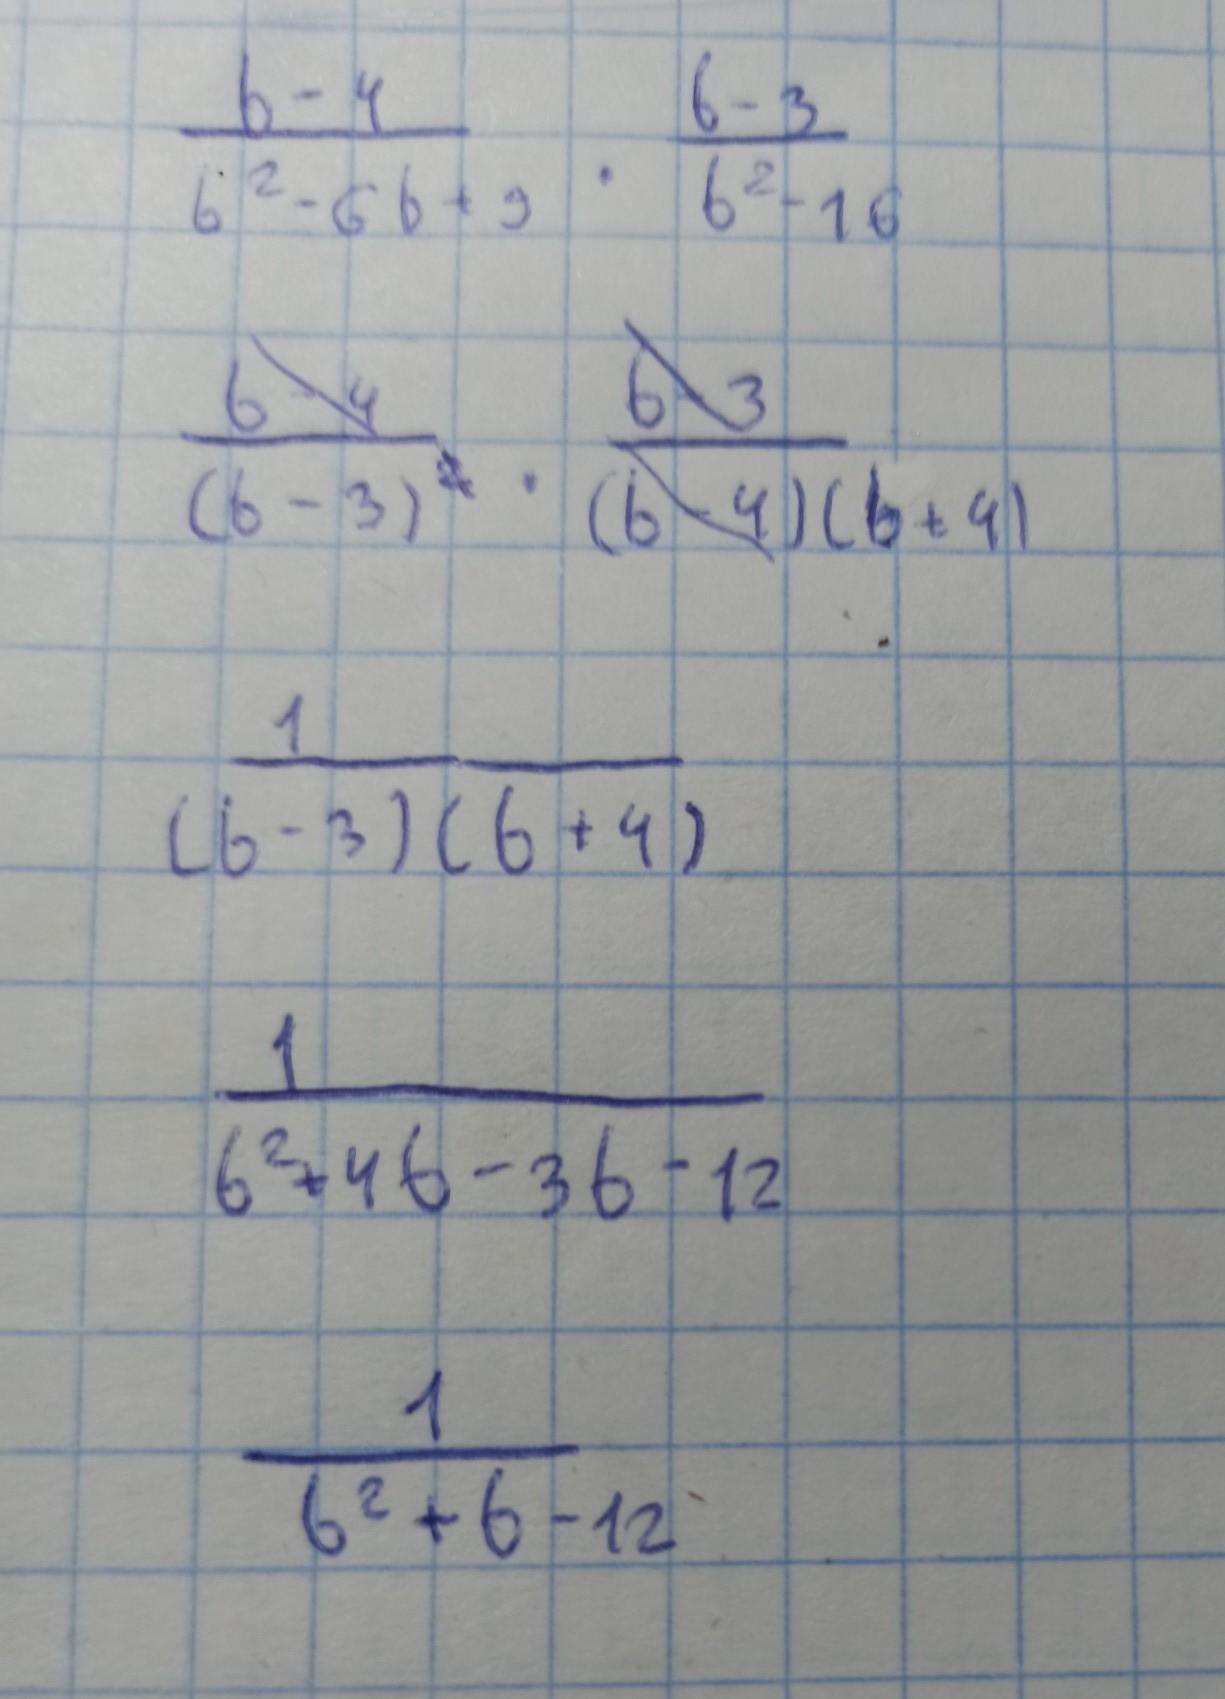 b - 4 b - 3
b² - 6b + 9 · b² - 16
b - 4 b - 3
(b - 3)² · (b - 4)(b + 4)
1
(b - 3)(b + 4)
1
b² + 4b - 3b - 12
1
b² + b - 12